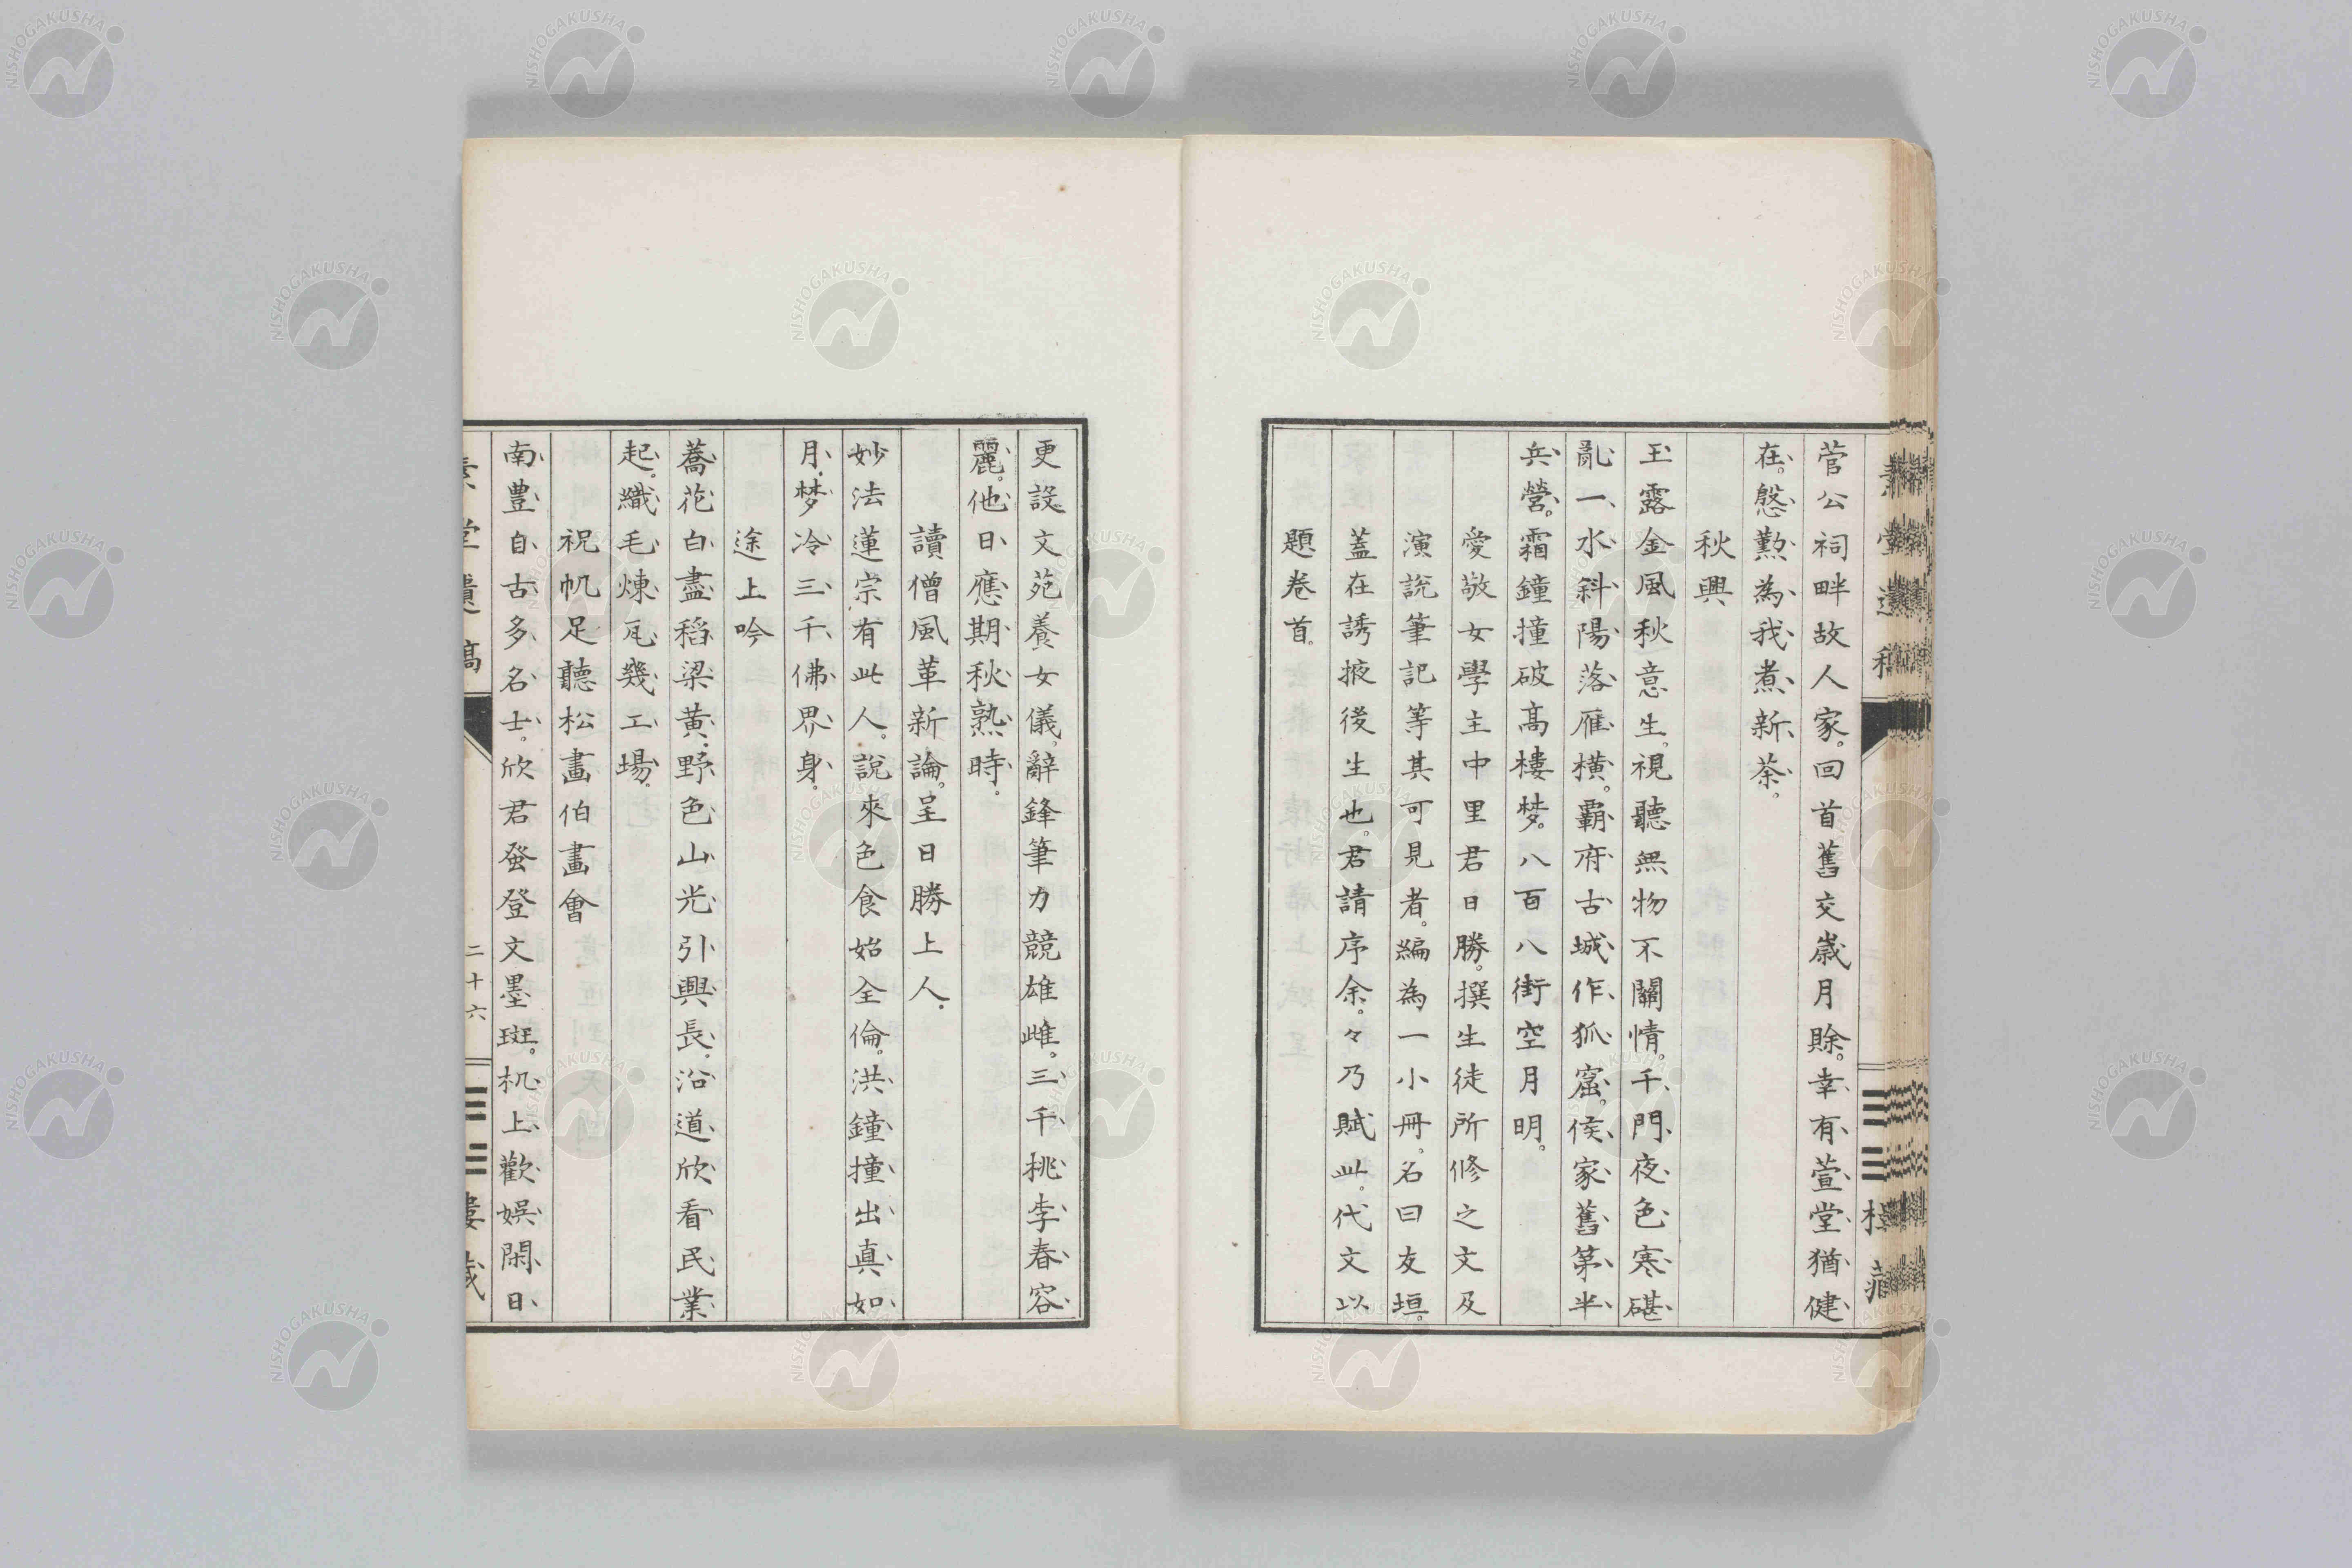 菅公祠畔故人家。回首舊交歲月賒。幸有萱堂猶健
在。慇懃為我煮新茶。
秋興
玉露金風秋意生。視聽無物不關情。千門夜色寒碪
亂。一水斜陽落雁橫。霸府古城作狐窟。侯家舊第半
兵營。霜鐘撞破高樓夢。八百八街空月明。
愛敬女學主中里君日勝。撰生徒所修之文及
演說筆記等其可見者。編為一小冊。名曰友垣。
蓋在誘掖後生也。君請序余。々乃賦此。代文以
題卷首。
更設文苑養女儀。辭鋒筆力競雄雌。三千桃李春容
麗。他日應期秋熟時。
讀僧風革新論。呈日勝上人。
妙法蓮宗有此人。說來色食始全倫。洪鐘撞出真如
月。梦冷三千佛界身。
途上吟
蕎花白盡稻梁黃。野色山光引興長。沿道欣看民業
起。織毛煉瓦幾工場。
祝帆足聽松畫伯畫會
南豊自古多名士。欣君發登文墨斑。机上歡娯閑日
素堂遺稿
二十六
三三樓藏
NISHOGAKUSHA